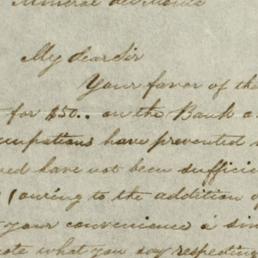 Mineral del Monte
My dear Sir
Your favor of the
for £50.. on the Bank o
cupations have prevented
ed have not been suffici
(owing to the addition of
your convenience a sin
ote what you say respecting